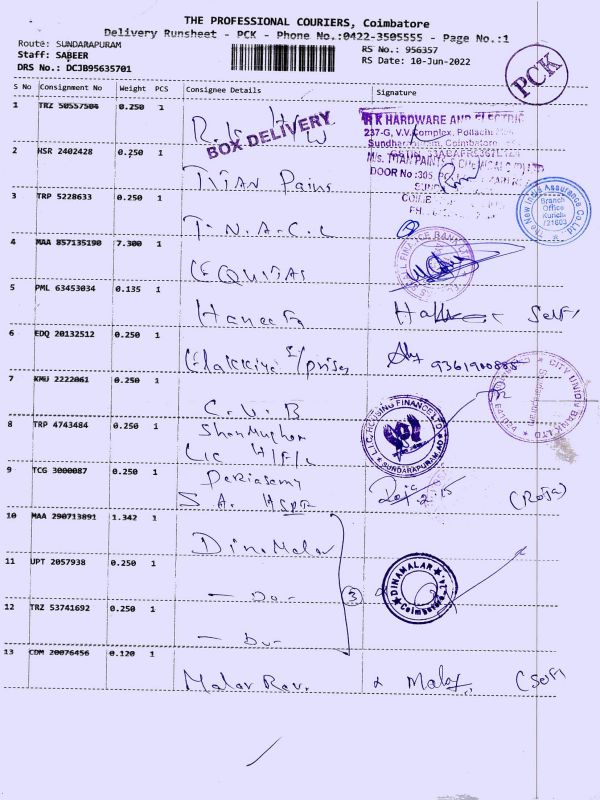 THE PROFESSIONAL COURIERS, Coimbatore
Delivery Runsheet - PCK - Phone No.:0422-3505555 - Page No.:1
Route: SUNDARAPURAM
Staff: SABEER
DRS No.: DCJB95635701
RS No.: 956357
RS Date: 10-Jun-2022
PCK
S No Consignment No Weight PCS Consignee Details Signature
1 TRZ 50557504 0.250 1
BOX DELIVERY
HARDWARE AND ELECTRIC
237-G, V.V.Complex, Pollachi
Coimbatore
2 HSR 2402428 0.250 1 TITAN Pains
DOOR No :305
3 TRP 5228633 0.250 1 T.N.A.C.L
The New India Assurance Co.Ltd.
Branch Office Kurichi 721603
4 MAA 857135190 7.300 1 EQUITAS
FINANCE BANK LTD
5 PML 63453034 0.135 1 Haneefa Self
6 EDQ 20132512 0.250 1 Elakkiya E/prises 9361900885
7 KMU 2222061 0.250 1 C.U.B
CITY UNION BANK LTD
Sundarapuram
641024
8 TRP 4743484 0.250 1 Shanmugham
LIC H/F/L
L.I.C. HOUSING FINANCE LTD
SUNDARAPURAM AO
9 TCG 3000087 0.250 1 Periasamy
S.A. HSPT
(Roja)
10 MAA 290713891 1.342 1 DinaMalar
11 UPT 2057938 0.250 1 - Do -
3
DINAMALAR
Coimbatore
12 TRZ 53741692 0.250 1 - Do -
13 CDM 20076456 0.120 1 Malar Rav. Malar